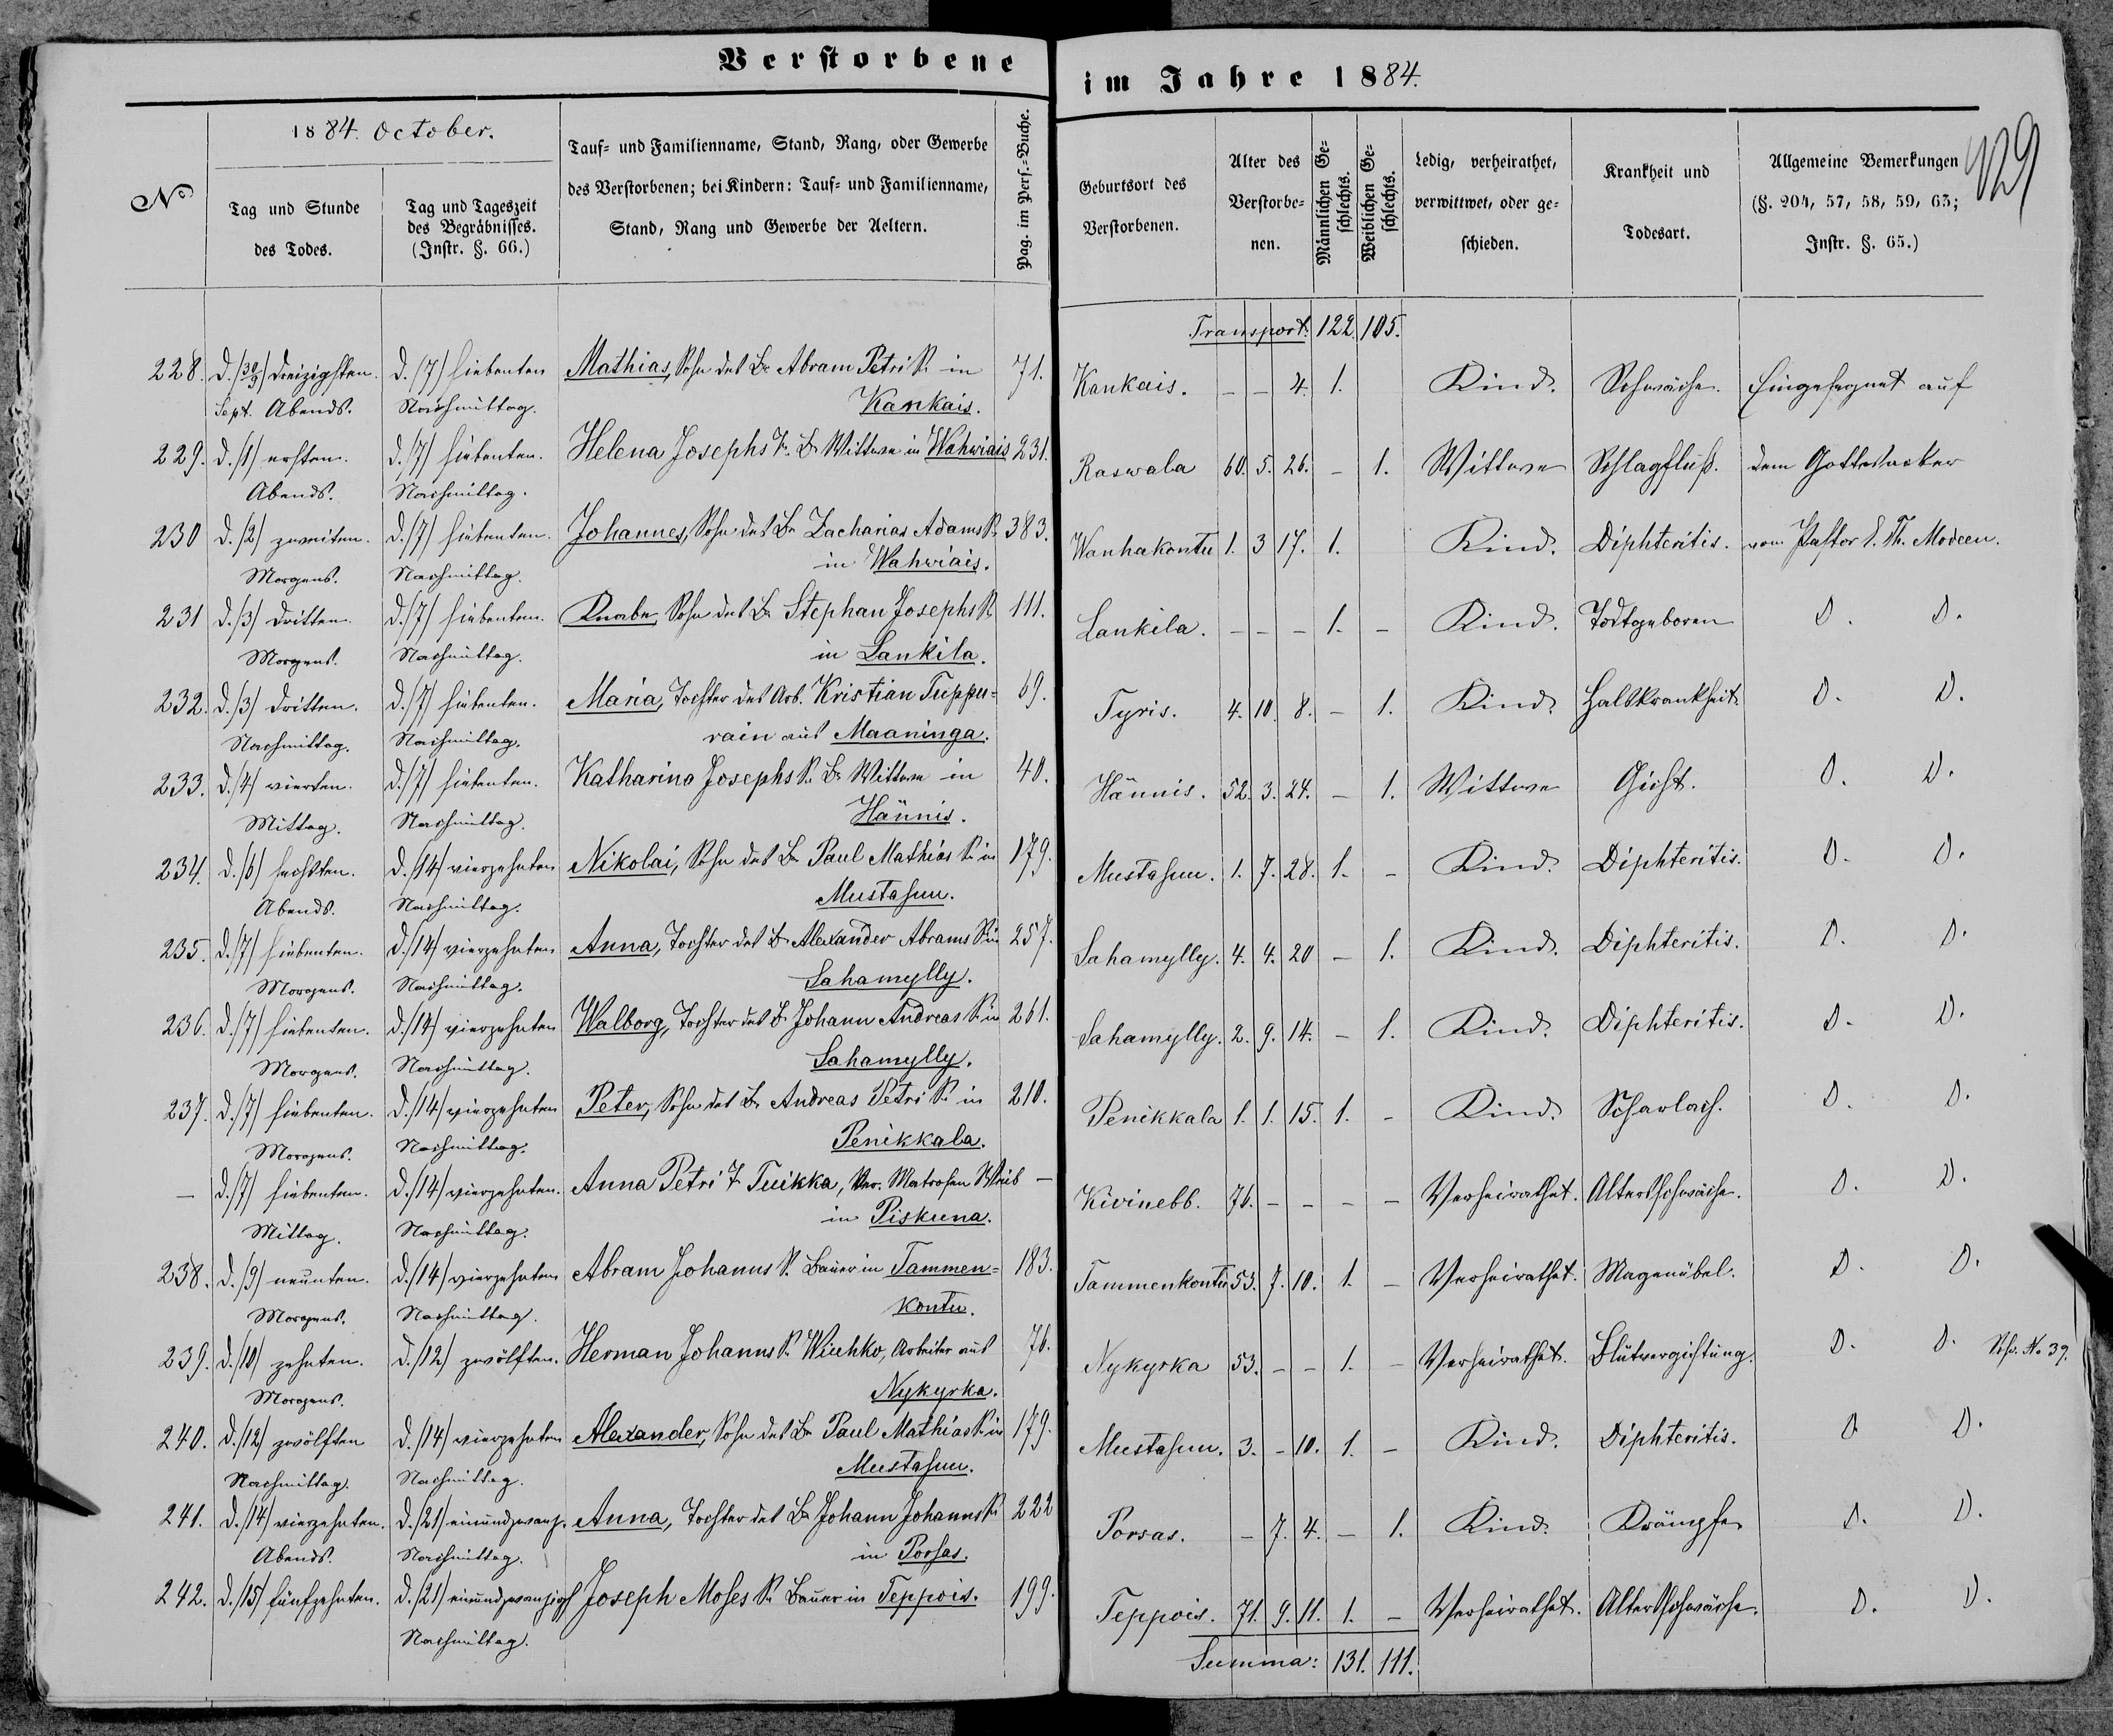 Verstorbene im Jahre 1884.
429
No
1884. October.
Tag und Stunde
des Todes.
Tag und Tageszeit
des Begräbnisses.
(Instr. §. 66.)
Tauf= und Familienname, Stand, Rang, oder Gewerbe
des Verstorbenen; bei Kindern: Tauf= und Familienname,
Stand, Rang und Gewerbe der Aeltern.
Pag. im Pers.=Buche.
Geburtsort des
Verstorbenen.
Alter des
Verstorbe=
nen.
Männlichen Ge=
schlechts.
Weiblichen Ge=
schlechts.
Ledig, verheirathet,
verwittwet, oder ge=
schieden.
Krankheit und
Todesart.
Allgemeine Bemerkungen
(§. 204, 57, 58, 59, 63;
Instr. §. 65.)
Transport: 122. 105.
228. d. (30/9) dreizigsten. d. (7) siebenten Mathias, Sohn des Br Abram Petri S. in 71. Kankais. - - 4. 1. Kind. Schwäche. Eingesegnet auf
Sept. Abends. Nachmittag. Kankais.
229. d. (1) ersten. d. (7) siebenten. Helena Josephs T. Br Wittwe in Wahwiais 231. Raswala 60. 5. 26. - 1. Wittwe Schlagfluß. dem Gottesacker
Abends. Nachmittag.
230 d. (2) zweiten. d. (7) siebenten. Johannes, Sohn des Br Zacharias Adams S. 383. Wanhakontu 1. 3 17. 1. Kind. Diphteritis. vom Pastor E. Th. Modeen.
Morgens. Nachmittag. in Wahwiais.
231 d. (3) dritten. d. (7) siebenten. Knabe, Sohn des Br Stephan Josephs S. 111. Lankila. - - - 1. - Kind. Todtgeboren D. D.
Morgens. Nachmittag. in Lankila.
232. d. (3) dritten. d. (7) siebenten. Maria, Tochter des Arb. Kristian Tuppu= 69. Tyris. 4. 10. 8. - 1. Kind. Halskrankheit. D. D.
Nachmittag. Nachmittag. rain aus Maaninga.
233. d. (4) vierten. d. (7) siebenten. Katharina Josephs S. Br Wittwe in 40. Hännis. 52. 3. 24. - 1. Wittwe Gicht. D. D.
Mittag. Nachmittag. Hännis.
234. d. (6) sechsten. d. (14) vierzehnten Nikolai, Sohn des Br Paul Mathias S. in 179. Mustasuu. 1. 7. 28. 1. - Kind. Diphteritis. D. D.
Abends. Nachmittag. Mustasuu.
235. d. (7) siebenten. d. (14) vierzehnten Anna, Tochter des Br Alexander Abrams S. in 257. Sahamylly. 4. 4. 20 - 1. Kind. Diphteritis. D. D.
Morgens. Nachmittag. Sahamylly.
236. d. (7) siebenten. d. (14) vierzehnten Walborg, Tochter des Br Johann Andreas S. in 261. Sahamylly. 2. 9. 14. - 1. Kind. Diphteritis. D. D.
Morgens. Nachmittag. Sahamylly.
237. d. (7) siebenten. d. (14) vierzehnten Peter, Sohn des Br Andreas Petri S. in 210. Penikkala 1. 1. 15. 1. - Kind. Scharlach. D. D.
Morgens. Nachmittag. Penikkala.
- d. (7) siebenten. d. (14) vierzehnten. Anna Petri T. Tuikka, Ver. Matrosen Weib - Kivinebb. 76. - - - - Verheirathet. Altersschwäche. D. D.
Mittag. Nachmittag. in Piskuna.
238. d. (9) neunten. d. (14) vierzehnten Abram Johanns S. Bauer in Tammen= 183. Tammenkontu 53. 7. 10. 1. - Verheirathet. Magenübel. D. D.
Morgens. Nachmittag. kontu.
239. d. (10) zehnten. d. (12) zwölften. Herman Johanns S. Wiuhko, Arbeiter aus 76. Nykyrka 53. - - 1. - Verheirathet. Blutvergiftung. D. D. Sch. No 39.
Morgens. Nykyrka.
240. d. (12) zwölften d. (14) vierzehnten Alexander, Sohn des Br Paul Mathias S. in 179. Mustasuu. 3. - 10. 1. - Kind. Diphteritis. D D.
Nachmittag. Nachmittag. Mustasuu.
241. d. (14) vierzehnten. d. (21) einundzwanz. Anna, Tochter des Br Johann Johanns S. 222 Porsas. - 7. 4. - 1. Kind. Krämpfe. D. D.
Abends. Nachmittag. in Porsas.
242. d. (15) fünfzehnten. d. (21) einundzwanzigs Joseph Moses S. Bauer in Teppois. 199. Teppois. 71. 9. 11. 1. - Verheirathet. Altersschwäche. D. D.
Nachmittag.
Summa: 131. 111.